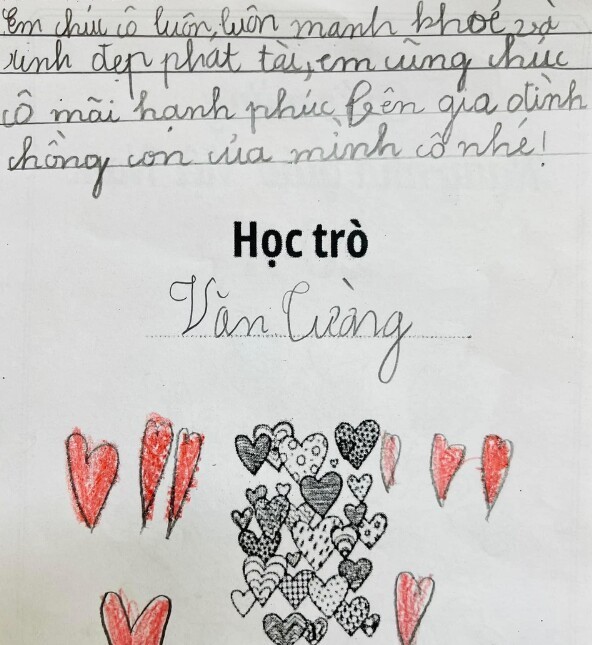 Em chúc cô luôn, luôn mạnh khoẻ và
xinh đẹp phát tài, em cũng chúc
cô mãi hạnh phúc bên gia đình
chồng con của mình cô nhé!
Học trò
Văn Cường